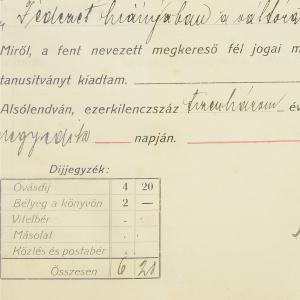 „Fedezet hiányában a váltóra
Miről, a fent nevezett megkereső fél jogai m
tanusitványt kiadtam.
Alsólendván, ezerkilenczszáz tizenhárom év
negyedik napján.
Dijjegyzék:
Óvásdij 4 20
Bélyeg a könyvön 2 —
Vitelbér . .
Másolat . .
Közlés és postabér . .
Összesen 6 20